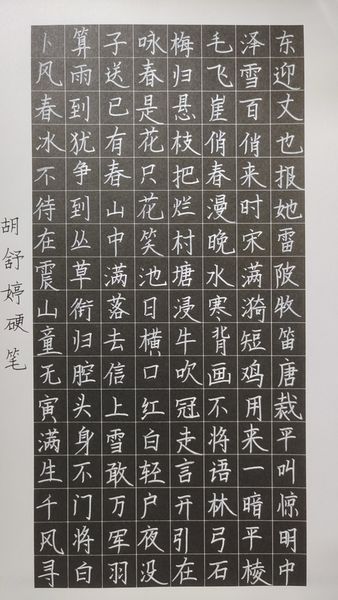 卜算子咏梅毛泽东
风雨送春归飞雪迎
春到已是悬崖百丈
冰犹有花枝俏俏也
不争春只把春来报
待到山花烂漫时她
在丛中笑村晚宋雷
震草满池塘水满陂
山衔落日浸寒漪牧
童归去横牛背短笛
无腔信口吹画鸡唐
寅头上红冠不用裁
满身雪白走将来平
生不敢轻言语一叫
千门万户开林暗惊
风将军夜引弓平明
寻白羽没在石棱中
胡舒婷硬笔